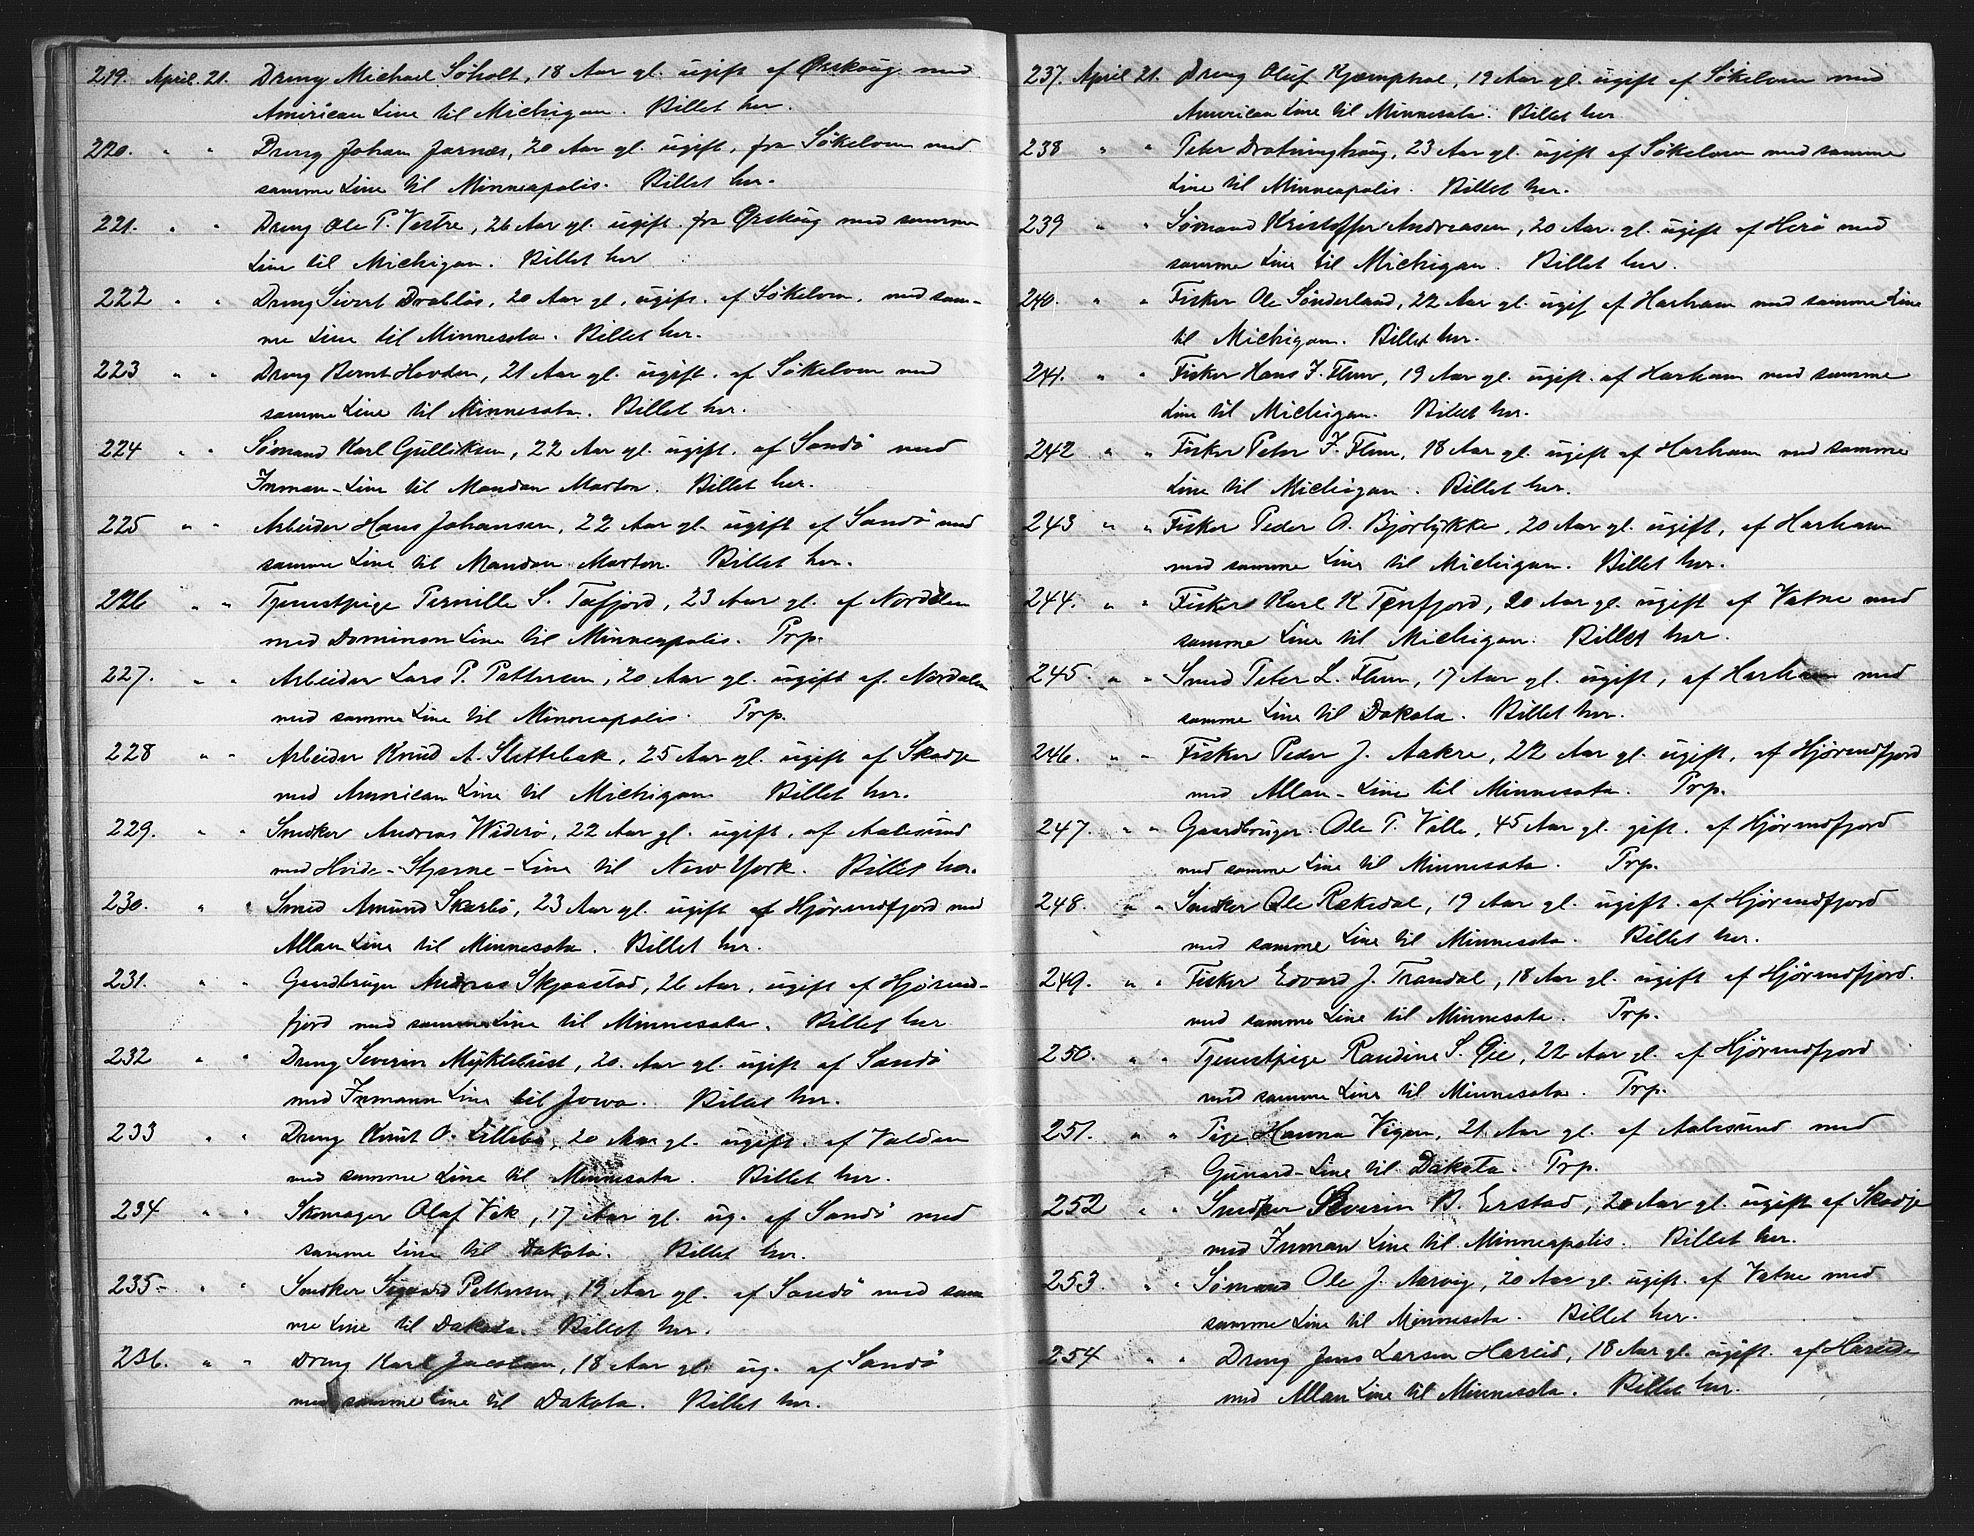 219. April. 21. Dreng Michael Søholt, 18 Aar gl. ugift af Ørskoug med
American Line til Michigan. Billet her.
220. " " Dreng Johan Jarnæs, 20 Aar gl. ugift, fra Søkelven med
samme Line til Minneapolis. Billet her.
221. " " Dreng Ole P. Vestre, 26 Aar gl. ugift. fra Ørskoug med samme
Line til Michigan. Billet her
222 " " Dreng Sivert Drabløs, 20 Aar gl, ugift. af Søkelven, med sam-
me Line til Minnesota. Billet her.
223 " " Dreng Bernt Hovden, 21 Aar gl. ugift. af Søkelven med
samme Line til Minnesota. Billet her.
224 " " Sømand Karl Gulliksen, 22 Aar gl. ugift. af Sandø med
Inman-Line til Mandan Marton. Billet her.
225 " " Arbeider Hans Johansen, 22 Aar gl. ugift af Sandø med
samme Line til Mandan Marton. Billet her.
226 " " Tjenestpige Pernille S. Tafjord, 23 Aar gl. af Norddalen
med Dominon Line til Minneapolis. Prp.
227. " " Arbeider Lars P. Pettersen, 20 Aar gl. ugift af. Nordalen
med samme Line til Minneapolis. Prp.
228 " " Arbeider Knud A. Slettebak, 25 Aar gl. ugift af Skodje
med American Line til Michigan Billet her.
229. " " Snedker Andreas Widerø, 22 Aar gl. ugift. af Aalesund
med Hvide-Stjerne-Line til New York. Billet her.
230. " " Smed Amund Skarbø, 23 Aar gl. ugift af Hjørendfjord med
Allan Line til Minnesota. Billet her.
231. " " Gaardbruger Andreas Skjaastad, 26 Aar, ugift af Hjørend-
fjord med samme Line til Minnesota. Billet her
232 " " Dreng Severin Myklebust, 20. Aar gl. ugift af Sandø
med Inmann Line til Jowa. Billet her.
233 " " Dreng Knut O. Lillebø, 20 Aar gl. ugift. af Valden
med samme Line til Minnesota. Billet her.
234 " " Skomager Olaf Vik, 17 Aar gl. ug. af Sandø med
samme Line til Dakota. Billet her.
235- " " Snedker Sigvard Pettersen, 19 Aar gl. af Sandø med sam
me Line til Dakota. Billet her.
236. " " Dreng Karl Jacobsen, 18 Aar gl. ug. af Sandø
med samme Line til Dakota. Billet her.
237. April 21. Dreng Oluf Kjæmphol, 19 Aar gl. ugift af Søkelven med
American Line til Minnesota. Billet her
238 " " Peter Drotninghaug, 23 Aar gl. ugift af Søkelven med samme
Line til Minneapolis. Billet her.
239 " " Sømand Kristoffer Andreasen, 20 Aar. gl. ugift af Herø med
samme Line til Michigan. Billet her.
240. " " Fisker Ole Sønderland, 22 Aar gl. ugif af Harham med samme Line
til Michigan. Billet her.
241. " " Fisker Hans J. Flem, 19 Aar gl. ugift. af Harham med samme
Line til Michigan. Billet her.
242 " " Fisker Peter J. Flem, 18 Aar gl. ugift af Harham med samme
Line til Michigan. Billet her.
243 " " Fisker Peder A. Bjørlykke, 20 Aar gl. ugift, af Harham
med samme Line til Michigan. Billet her.
244. " " Fisker Karl K Tenfjord, 20 Aar gl. ugift af Vatne med
samme Line til Michigan. Billet her.
245. " " Smed Peter L. Flem, 17 Aar gl. ugift, af Harham med
samme Line til Dakota. Billet her.
246. " " Fisker Peder J. Aakre, 22 Aar gl. ugift, af Hjørendfjord
med Allan-Line til Minnesota. Prp.
247. " " Gaardbruger. Ole T. Valle, 45 Aar gl. gift. af Hjørendfjord
med samme Line til Minnesota. Prp.
248. " " Snedker Ole Rekedal, 19 Aar gl. ugift. af Hjørendfjord
med samme Line til Minnesota. Billet her.
249. " " Fisker Edvard J. Trandal, 18 Aar gl. ugift af Hjørendfjord.
med samme Line til Minnesota. Prp.
250. " " Tjenestpige Randine S. Øie, 22 Aar gl. af Hjørendfjord
med samme Line til Minnesota. Prp.
251. " " Pige Hanna Vigen, 21 Aar gl. af Aalesund med
Gunard-Line til Dakota. Prp.
252 " " Snedker Severin B. Erstad, 20 Aar gl. ugift af Skodje
med Inman Line til Minneapolis. Billet her.
253. " " Sømand Ole J. Aarvig, 20 Aar gl. ugift. af Vatne med
samme Line til Minnesota. Billet her.
254 " " Dreng Jens Larsen Hareid, 18 Aar gl. ugift. af Hareide
med Allan Line til Minnesota. Billet her.